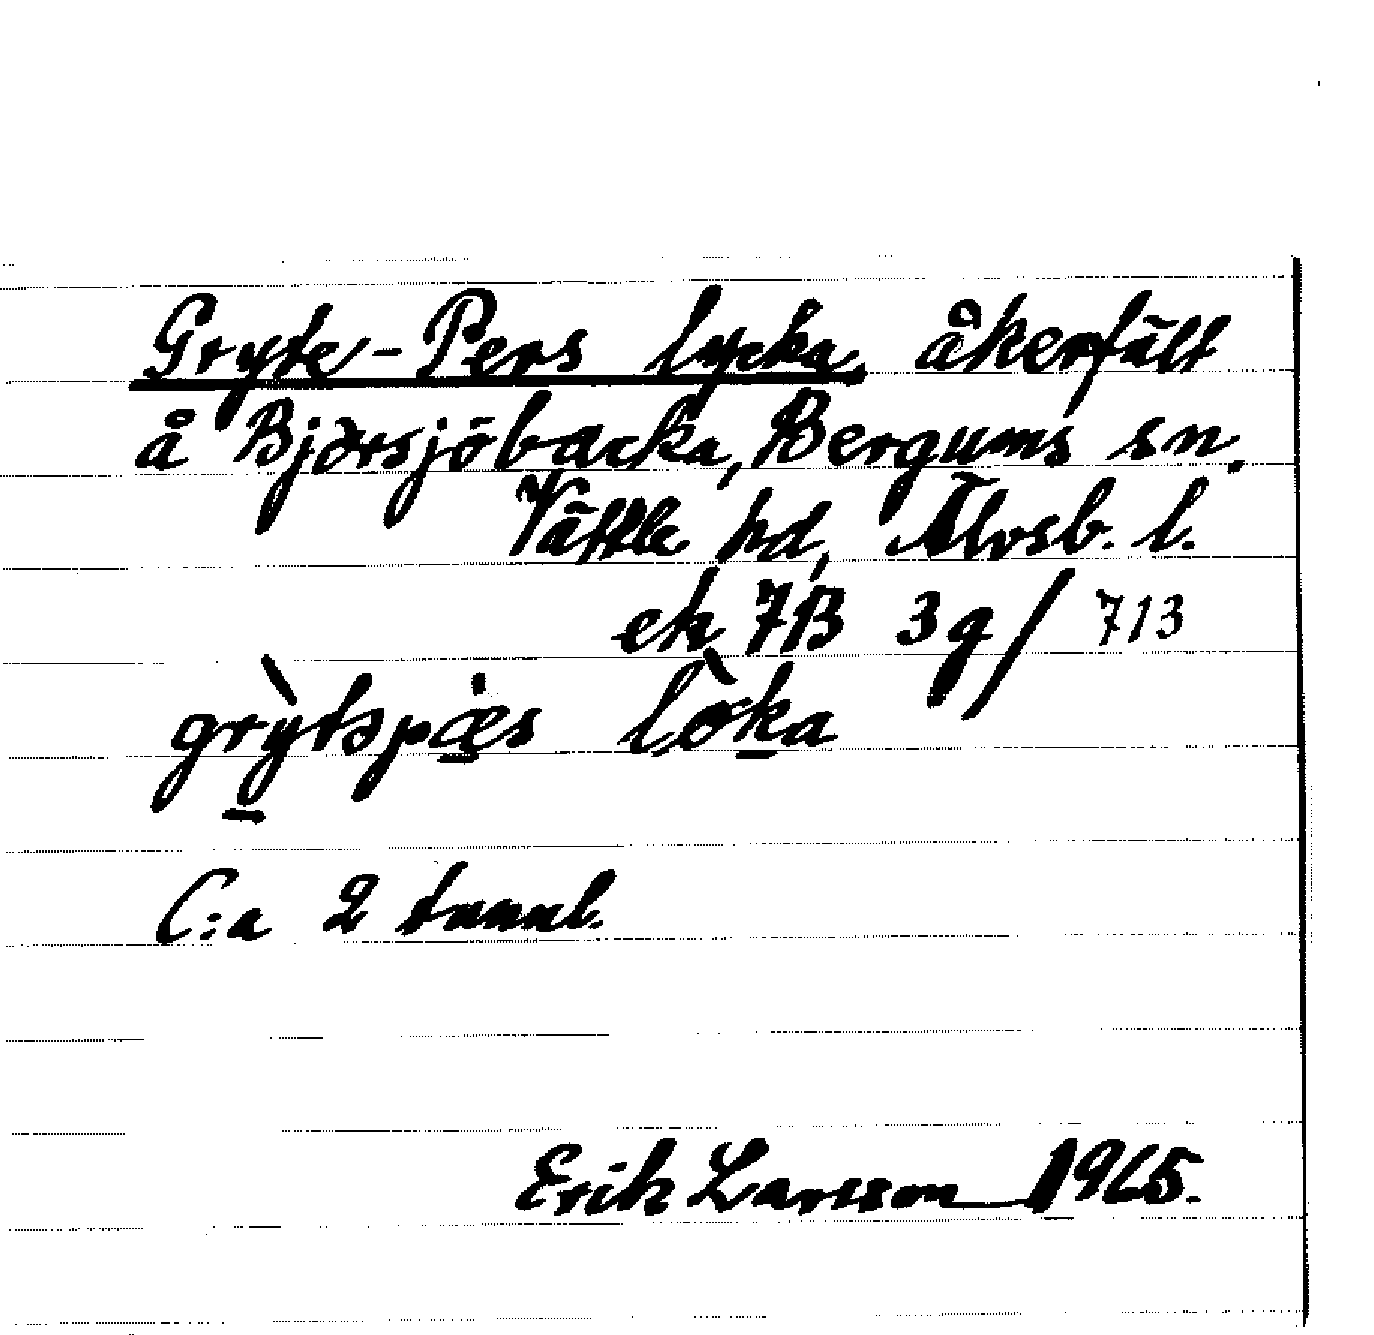 Gryte-Pers lycka, åkerfält
å Björsjöbacka, Bergums sn.
Vättle hd, Älvsb. l.
ek 7B 3g/713
grỳtspæ̀s lòka
C:a 2 tunnl.
Erik Larsson 1965.